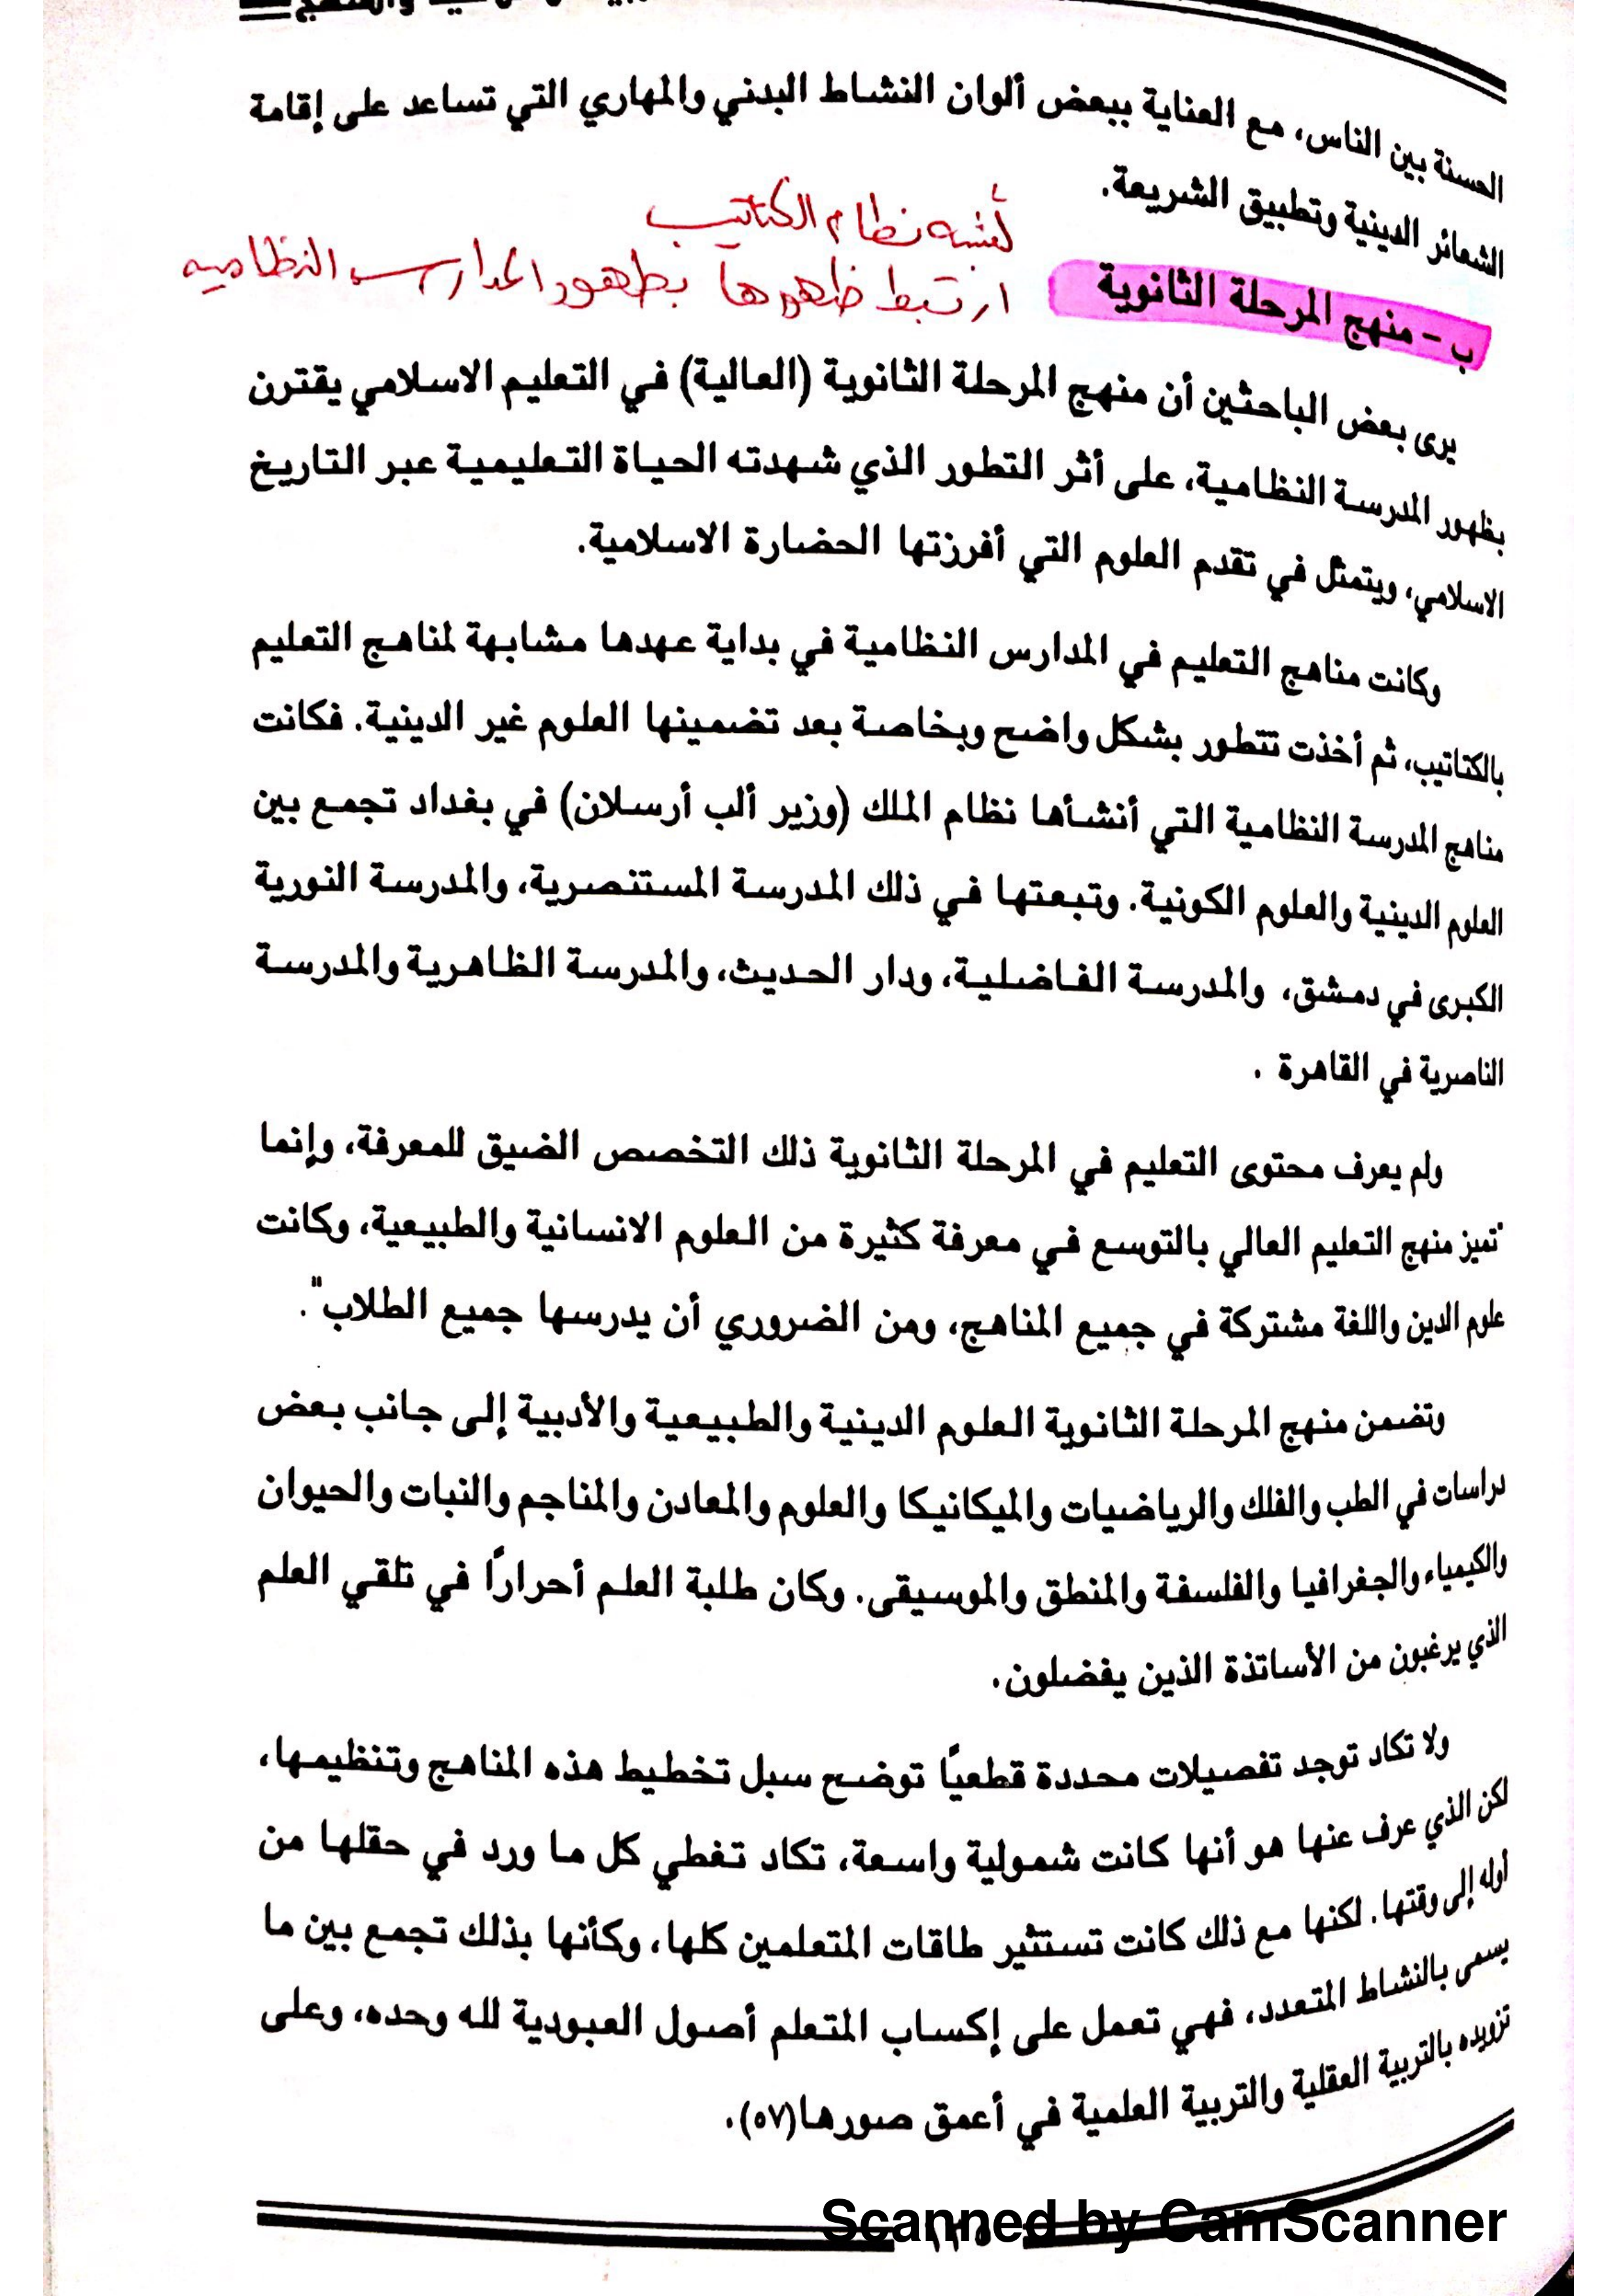 والمنهج
الحسنة بين الناس، مع العناية ببعض ألوان النشاط البدني والمهاري التي تساعد على إقامة
الشعائر الدينية وتطبيق الشريعة.
نظام الكتاتيب
ارتبط ظهورها بظهور المدارس النظاميه
ب - منهج المرحلة الثانوية
يرى بعض الباحثين أن منهج المرحلة الثانوية (العالية) في التعليم الاسلامي يقترن
بظهور المدرسة النظامية، على أثر التطور الذي شهدته الحياة التعليمية عبر التاريخ
الاسلامي، ويتمثل في تقدم العلوم التي أفرزتها الحضارة الاسلامية.
وكانت مناهج التعليم في المدارس النظامية في بداية عهدها مشابهة لمناهج التعليم
بالكتاتيب، ثم أخذت تتطور بشكل واضح وبخاصة بعد تضمينها العلوم غير الدينية. فكانت
مناهج المدرسة النظامية التي أنشأها نظام الملك (وزير ألب أرسلان) في بغداد تجمع بين
العلوم الدينية والعلوم الكونية. وتبعتها في ذلك المدرسة المستنصرية، والمدرسة النورية
الكبرى في دمشق، والمدرسة الفاضلية، ودار الحديث، والمدرسة الظاهرية والمدرسة
الناصرية في القاهرة .
ولم يعرف محتوى التعليم في المرحلة الثانوية ذلك التخصص الضيق للمعرفة، وإنما
"تميز منهج التعليم العالي بالتوسع في معرفة كثيرة من العلوم الانسانية والطبيعية، وكانت
علوم الدين واللغة مشتركة في جميع المناهج، ومن الضروري أن يدرسها جميع الطلاب".
وتضمن منهج المرحلة الثانوية العلوم الدينية والطبيعية والأدبية إلى جانب بعض
دراسات في الطب والفلك والرياضيات والميكانيكا والعلوم والمعادن والمناجم والنبات والحيوان
والكيمياء والجغرافيا والفلسفة والمنطق والموسيقى. وكان طلبة العلم أحرارًا في تلقي العلم
الذي يرغبون من الأساتذة الذين يفضلون.
ولا تكاد توجد تفصيلات محددة قطعيًا توضح سبل تخطيط هذه المناهج وتنظيمها،
لكن الذي عرف عنها هو أنها كانت شمولية واسعة، تكاد تغطي كل ما ورد في حقلها من
أوله إلى وقتها. لكنها مع ذلك كانت تستثير طاقات المتعلمين كلها، وكأنها بذلك تجمع بين ما
يسمى بالنشاط المتعدد، فهي تعمل على إكساب المتعلم أصول العبودية لله وحده، وعلى
تزويده بالتربية العقلية والتربية العلمية في أعمق صورها(٥٧).
Scanned by CamScanner